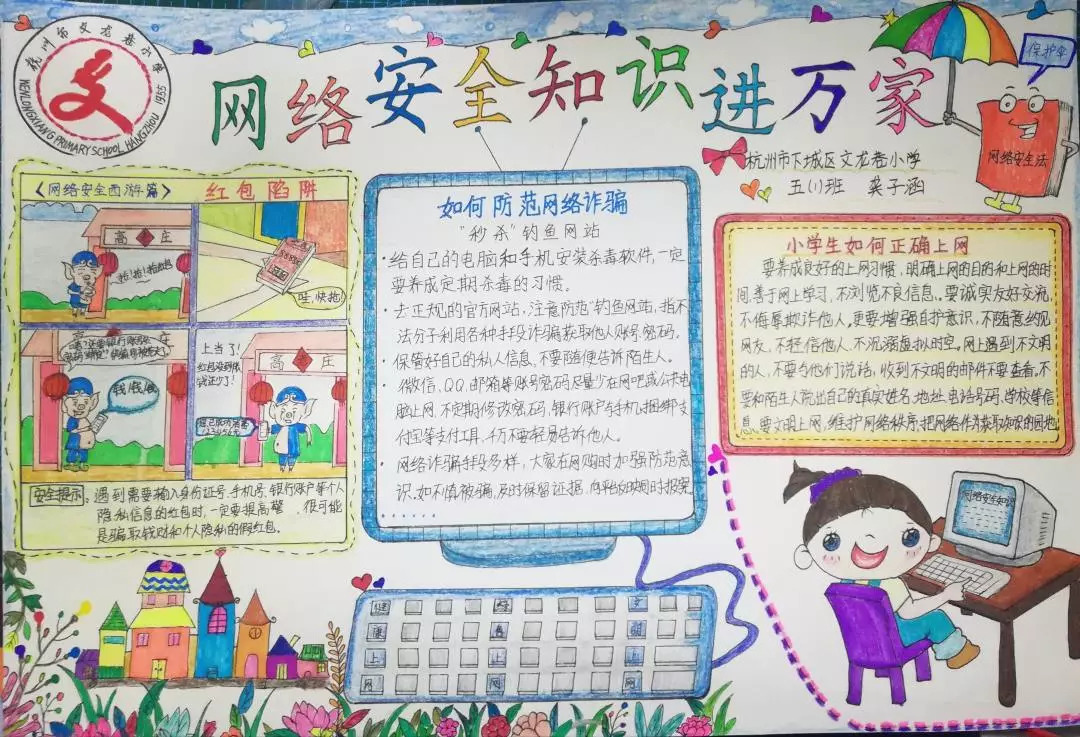 杭州市文龙巷小学
WENLONGXIANG PRIMARY SCHOOL HANGZHOU
1955
网络安全知识进万家
保护伞
网络安全法
杭州市下城区文龙巷小学
五(1)班 龚子涵
《网络安全西游篇》
红包陷阱
高老庄
哇,快抢
高老庄
钱!钱!钱
上当了!
高老庄
安全提示:遇到需要输入身份证号、手机号、银行账户等个人
隐私信息的红包时,一定要提高警 很可能
是骗取钱财和个人隐私的假红包。
如何防范网络诈骗
"秒杀"钓鱼网站
·给自己的电脑和手机安装杀毒软件,一定
要养成定期杀毒的习惯。
·去正规的官方网站,注意防范"钓鱼网站,指不
法分子利用各种手段诈骗获取他人账号、密码。
·保管好自己的私人信息,不要随便告诉陌生人。
·微信、QQ、邮箱等账号密码尽量少在网吧或公共电
脑上网,不定期修改密码,银行账户与手机捆绑支
付宝等支付工具,千万不要轻易告诉他人。
·网络诈骗手段多样,大家在网购时加强防范意
识。如不慎被骗,及时保留证据,向平台反映同时报案
······
小学生如何正确上网
要养成良好的上网习惯,明确上网的目的和上网的时
间,善于网上学习,不浏览不良信息。要诚实友好交流,
不侮辱欺诈他人。更要增强自护意识,不随意约见
网友,不轻信他人。不沉溺虚拟时空。网上遇到不文明
的人,不要与他们说话,收到不文明的邮件不要查看,不
要和陌生人说出自己的真实姓名、地址、电话号码、学校等信
息,要文明上网,维护网络秩序,把网络作为获取知识的园地
网络安全知识
健 绿 文
康 色 明
上 上 上
网 网 网